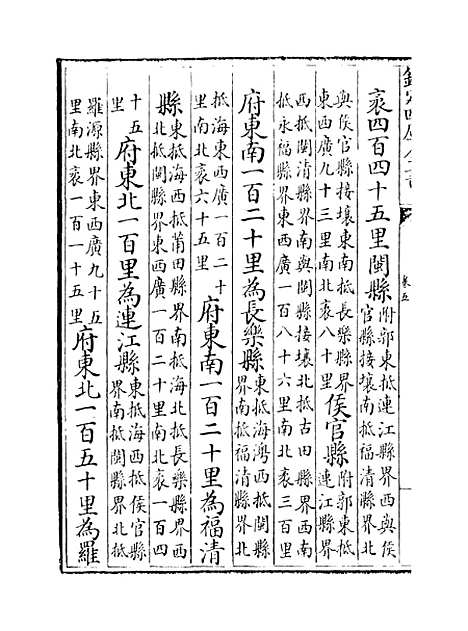 欽定四庫全書
卷五
袤四百四十五里閩縣附郭東抵連江縣界西與侯官縣接壤南抵福清縣界北
與侯官縣接壤東南抵長樂縣界東西廣九十三里南北袤八十里侯官縣附郭東抵連江縣界
西抵閩清縣界南與閩縣接壤北抵古田縣界西南抵永福縣界東西廣一百八十六里南北袤三百里
府東南一百二十里為長樂縣東抵海澚西抵閩縣界南抵福清縣界北
抵海東西廣一百二十里南北袤六十五里府東南一百二十里為福清
縣東抵海西抵莆田縣界南抵海北抵長樂縣界西北抵閩縣界東西廣一百二十里南北袤一百四
十五里府東北一百里為連江縣東抵海西抵侯官縣界南抵閩縣界北抵
羅源縣界東西廣九十五里南北袤一百一十五里府東北一百五十里為羅